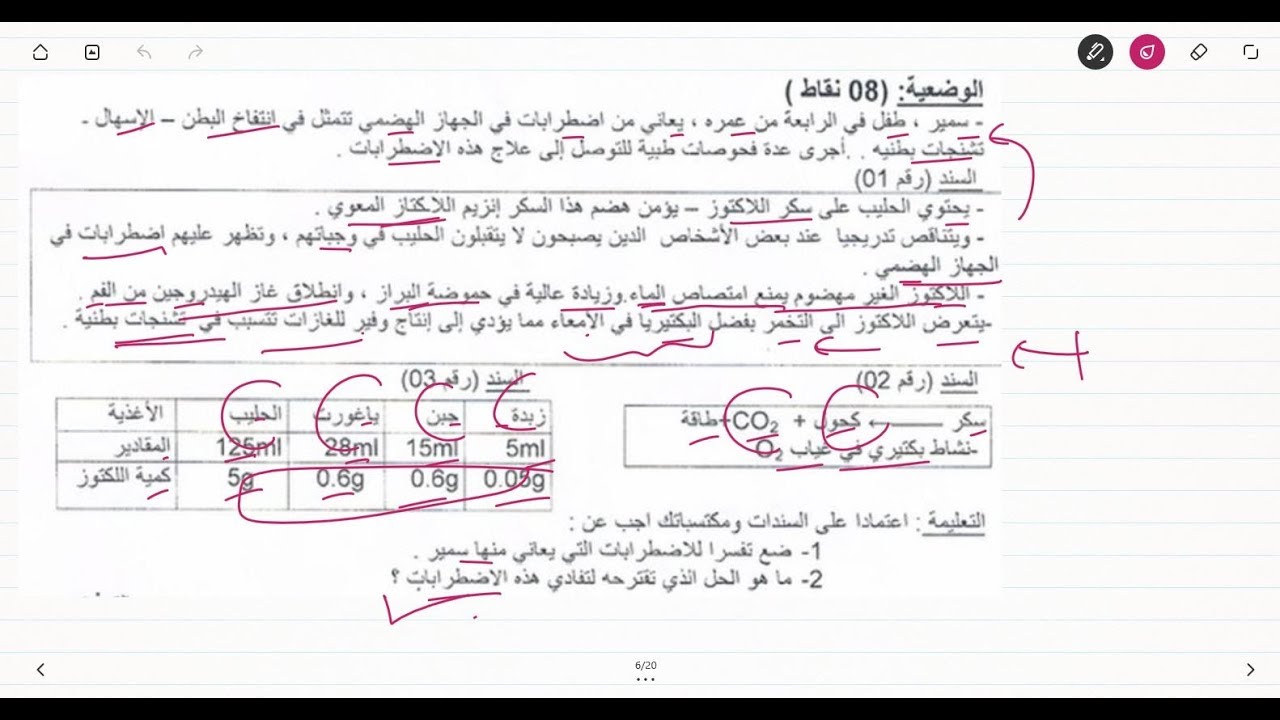 الوضعية: (08 نقاط )
- سمير ، طفل في الرابعة من عمره ، يعاني من اضطرابات في الجهاز الهضمي تتمثل في انتفاخ البطن – الإسهال -
تشنجات بطنيه . .أجرى عدة فحوصات طبية للتوصل إلى علاج هذه الاضطرابات .
السند (رقم 01)
- يحتوي الحليب على سكر اللاكتوز – يؤمن هضم هذا السكر إنزيم اللاكتاز المعوي .
- ويتناقص تدريجيا عند بعض الأشخاص الدين يصبحون لا يتقبلون الحليب في وجباتهم ، وتظهر عليهم اضطرابات في
الجهاز الهضمي .
- اللاكتوز الغير مهضوم يمنع امتصاص الماء وزيادة عالية في حموضة البراز ، وانطلاق غاز الهيدروجين من الفم .
-يتعرض اللاكتوز الى التخمر بفضل البكتيريا في الأمعاء مما يؤدي إلى إنتاج وفير للغازات تتسبب في تشنجات بطنية .
السند (رقم 02)
سكر ← كحول + CO2+طاقة
-نشاط بكتيري في غياب O2
السند (رقم 03)
الأغذية الحليب ياغورت جبن زبدة
المقادير 125ml 28ml 15ml 5ml
كمية اللكتوز 5g 0.6g 0.6g 0.05g
التعليمة : اعتمادا على السندات ومكتسباتك اجب عن :
1- ضع تفسرا للاضطرابات التي يعاني منها سمير .
2- ما هو الحل الذي تقترحه لتفادي هذه الاضطرابات ؟
6/20